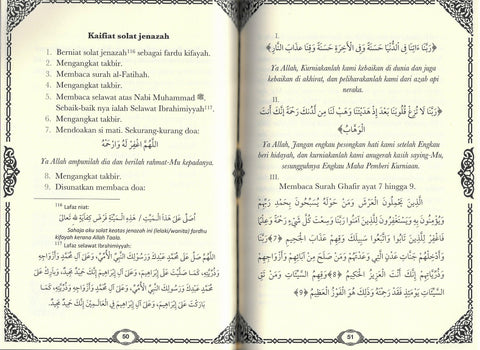 Kaifiat solat jenazah
1. Berniat solat jenazah116 sebagai fardu kifayah.
2. Mengangkat takbir.
3. Membaca surah al-Fatihah.
4. Mengangkat takbir.
5. Membaca selawat atas Nabi Muhammad ﷺ.
Sebaik-baik nya ialah Selawat Ibrahimiyyah117.
6. Mengangkat takbir.
7. Mendoakan si mati. Sekurang-kurang doa:
اللَّهُمَّ اغْفِرْ لَهُ وَارْحَمْهُ
Ya Allah ampunilah dia dan berilah rahmat-Mu kepadanya.
8. Mengangkat takbir.
9. Disunatkan membaca doa:
116 Lafaz niat:
أُصَلِّي عَلَى هَذَا الْمَيِّتِ / هَذِهِ الْمَيِّتَةِ فَرْضَ كِفَايَةٍ لِلَّهِ تَعَالَىٰ
Sahaja aku solat keatas jenazah ini (lelaki/wanita) fardhu
kifayah kerana Allah Taala.
117 Lafaz selawat Ibrahimiyyah:
اللَّهُمَّ صَلِّ عَلَى مُحَمَّدٍ عَبْدِكَ وَرَسُولِكَ النَّبِيِّ الْأُمِّيِّ، وَعَلَى آلِ مُحَمَّدٍ وَأَزْوَاجِهِ
وَذُرِّيَّتِهِ، كَمَا صَلَّيْتَ عَلَى إِبْرَاهِيمَ، وَعَلَى آلِ إِبْرَاهِيمَ إِنَّكَ حَمِيدٌ مَجِيدٌ، وَبَارِكْ عَلَى
مُحَمَّدٍ عَبْدِكَ وَرَسُولِكَ النَّبِيِّ الْأُمِّيِّ، وَعَلَى آلِ مُحَمَّدٍ وَأَزْوَاجِهِ وَذُرِّيَّتِهِ، كَمَا
بَارَكْتَ عَلَى إِبْرَاهِيمَ، وَعَلَى آلِ إِبْرَاهِيمَ فِي الْعَالَمِينَ إِنَّكَ حَمِيدٌ مَجِيدٌ.
50
I.
﴿رَبَّنَا ءَاتِنَا فِي الدُّنْيَا حَسَنَةً وَفِي الْآخِرَةِ حَسَنَةً وَقِنَا عَذَابَ النَّارِ﴾
Ya Allah, Kurniakanlah kami kebaikan di dunia dan juga
kebaikan di akhirat, dan peliharakanlah kami dari azab api
neraka.
II.
﴿رَبَّنَا لَا تُزِغْ قُلُوبَنَا بَعْدَ إِذْ هَدَيْتَنَا وَهَبْ لَنَا مِن لَّدُنكَ رَحْمَةً إِنَّكَ أَنتَ
الْوَهَّابُ﴾
Ya Allah, Jangan engkau pesongkan hati kami setelah Engkau
beri hidayah, dan kurniakanlah kami anugerah kasih saying-Mu,
sesungguhnya Engkau Maha Pemberi Kurniaan.
III.
Membaca Surah Ghafir ayat 7 hingga 9.
الَّذِينَ يَحْمِلُونَ الْعَرْشَ وَمَنْ حَوْلَهُ يُسَبِّحُونَ بِحَمْدِ رَبِّهِمْ
وَيُؤْمِنُونَ بِهِ وَيَسْتَغْفِرُونَ لِلَّذِينَ آمَنُوا رَبَّنَا وَسِعْتَ كُلَّ شَيْءٍ رَحْمَةً وَعِلْمًا
فَاغْفِرْ لِلَّذِينَ تَابُوا وَاتَّبَعُوا سَبِيلَكَ وَقِهِمْ عَذَابَ الْجَحِيمِ ﴿7﴾ رَبَّنَا
وَأَدْخِلْهُمْ جَنَّاتِ عَدْنٍ الَّتِي وَعَدْتَهُمْ وَمَنْ صَلَحَ مِنْ آبَائِهِمْ وَأَزْوَاجِهِمْ
وَذُرِّيَّاتِهِمْ إِنَّكَ أَنْتَ الْعَزِيزُ الْحَكِيمُ ﴿8﴾ وَقِهِمُ السَّيِّئَاتِ وَمَنْ تَقِ
السَّيِّئَاتِ يَوْمَئِذٍ فَقَدْ رَحِمْتَهُ وَذَلِكَ هُوَ الْفَوْزُ الْعَظِيمُ ﴿9﴾
51